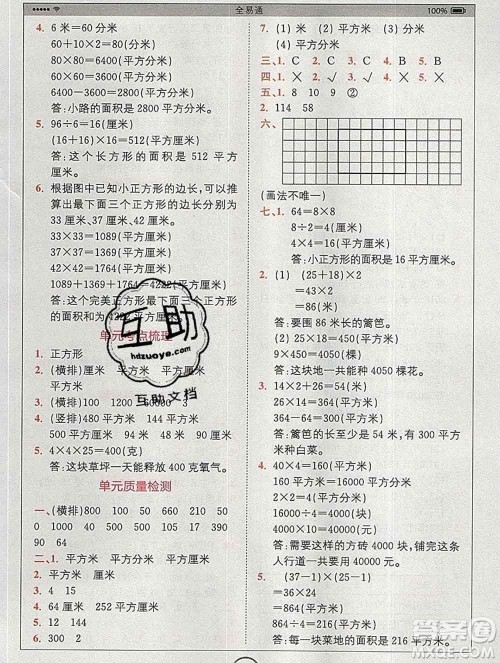 全易通
100%
4. 6米=60分米
60+10×2=80(平方分米)
80×80=6400(平方分米)
60×60=3600(平方分米)
6400-3600=2800(平方分米)
答:小路的面积是2800平方分米。
5. 96÷6=16(厘米)
(16+16)×16=512(平方厘米)
答:这个长方形的面积是512平方厘米。
6. 根据图中已知小正方形的边长,可以推
算出最下面三个正方形的边长分别是
33厘米、37厘米、42厘米。
33×33=1089(平方厘米)
37×37=1369(平方厘米)
42×42=1764(平方厘米)
1089+1369+1764=4222(平方厘米)
答:这个完美正方形最下面三个正方形
的面积和为4222平方厘米。
单元考点梳理
1. 正方形
2. (横排)厘米 平方米 平方厘米
3. (横排)100 1200 50000 3
4. (竖排)480平方米 144平方米
500平方厘米 94平方厘米
5. 4×4×25=400(克)
答:这块草坪一天能释放400克氧气。
单元质量检测
一、(横排)800 100 50 660 210 50
0 900 400 500 105 17 390
90 64
二、1. 平方米 平方分米 平方厘米
2. 平方米 平方厘米
3. 4 15
4. 64厘米 252平方厘米
5. 144
6. 300 2
7. (1)米 (2)平方米 (3)分米
(4)平方分米
三、1. C 2. C 3. B 4. B 5. C
四、1. × 2. √ 3. × 4. √ 5. ×
五、1. 8 10 9 ②
2. 114 58
六、
(画法不唯一)
七、1. 64=8×8
8÷2=4(厘米)
4×4=16(平方厘米)
答:小正方形的面积是16平方厘米。
2. (1) (25+18)×2
=43×2
=86(米)
答:要围86米长的篱笆。
(2) 25×18=450(平方米)
9×450=4050(棵)
答:这块地一共能种4050棵花。
3. 14×2+26=54(米)
14×26=364(平方米)
364-64=300(平方米)
答:篱笆的长至少是54米,有300平方
米种白菜。
4. 40×4=160(平方米)
160平方米=16000平方分米
2×2=4(平方分米)
16000÷4=4000(块)
4000×10=40000(元)
答:需要这样的方砖4000块,铺完这条
人行道一共要用40000元。
5. (37-1)×(25-1)
=36×24
=864(平方米)
864÷4=216(平方米)
答:每一块菜地的面积是216平方米。
互助
hdzuoye.com
互助文档